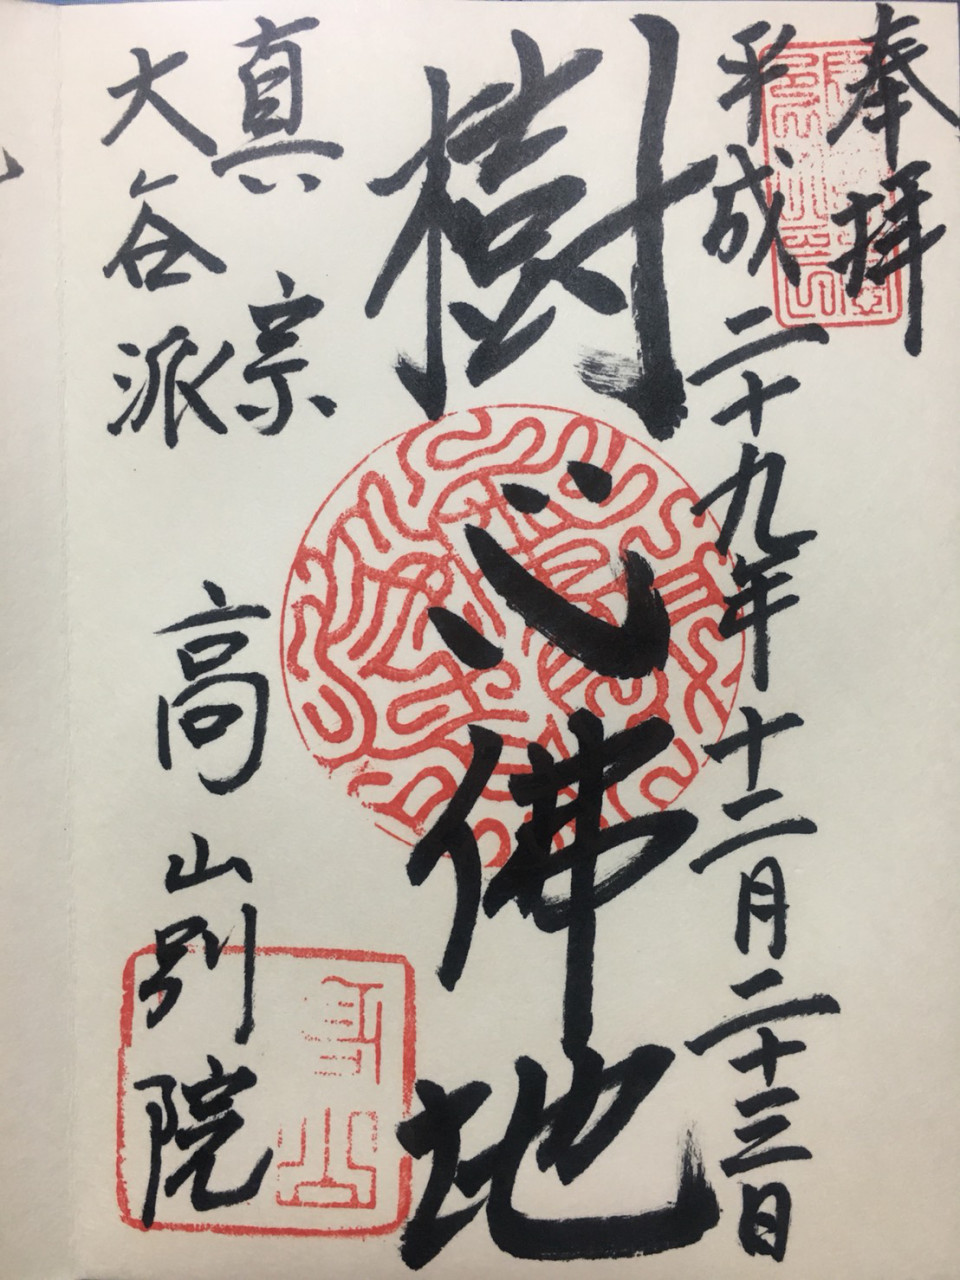 奉拝
平成二十九年十二月二十三日
樹心佛地
真宗
大谷派
高山別院